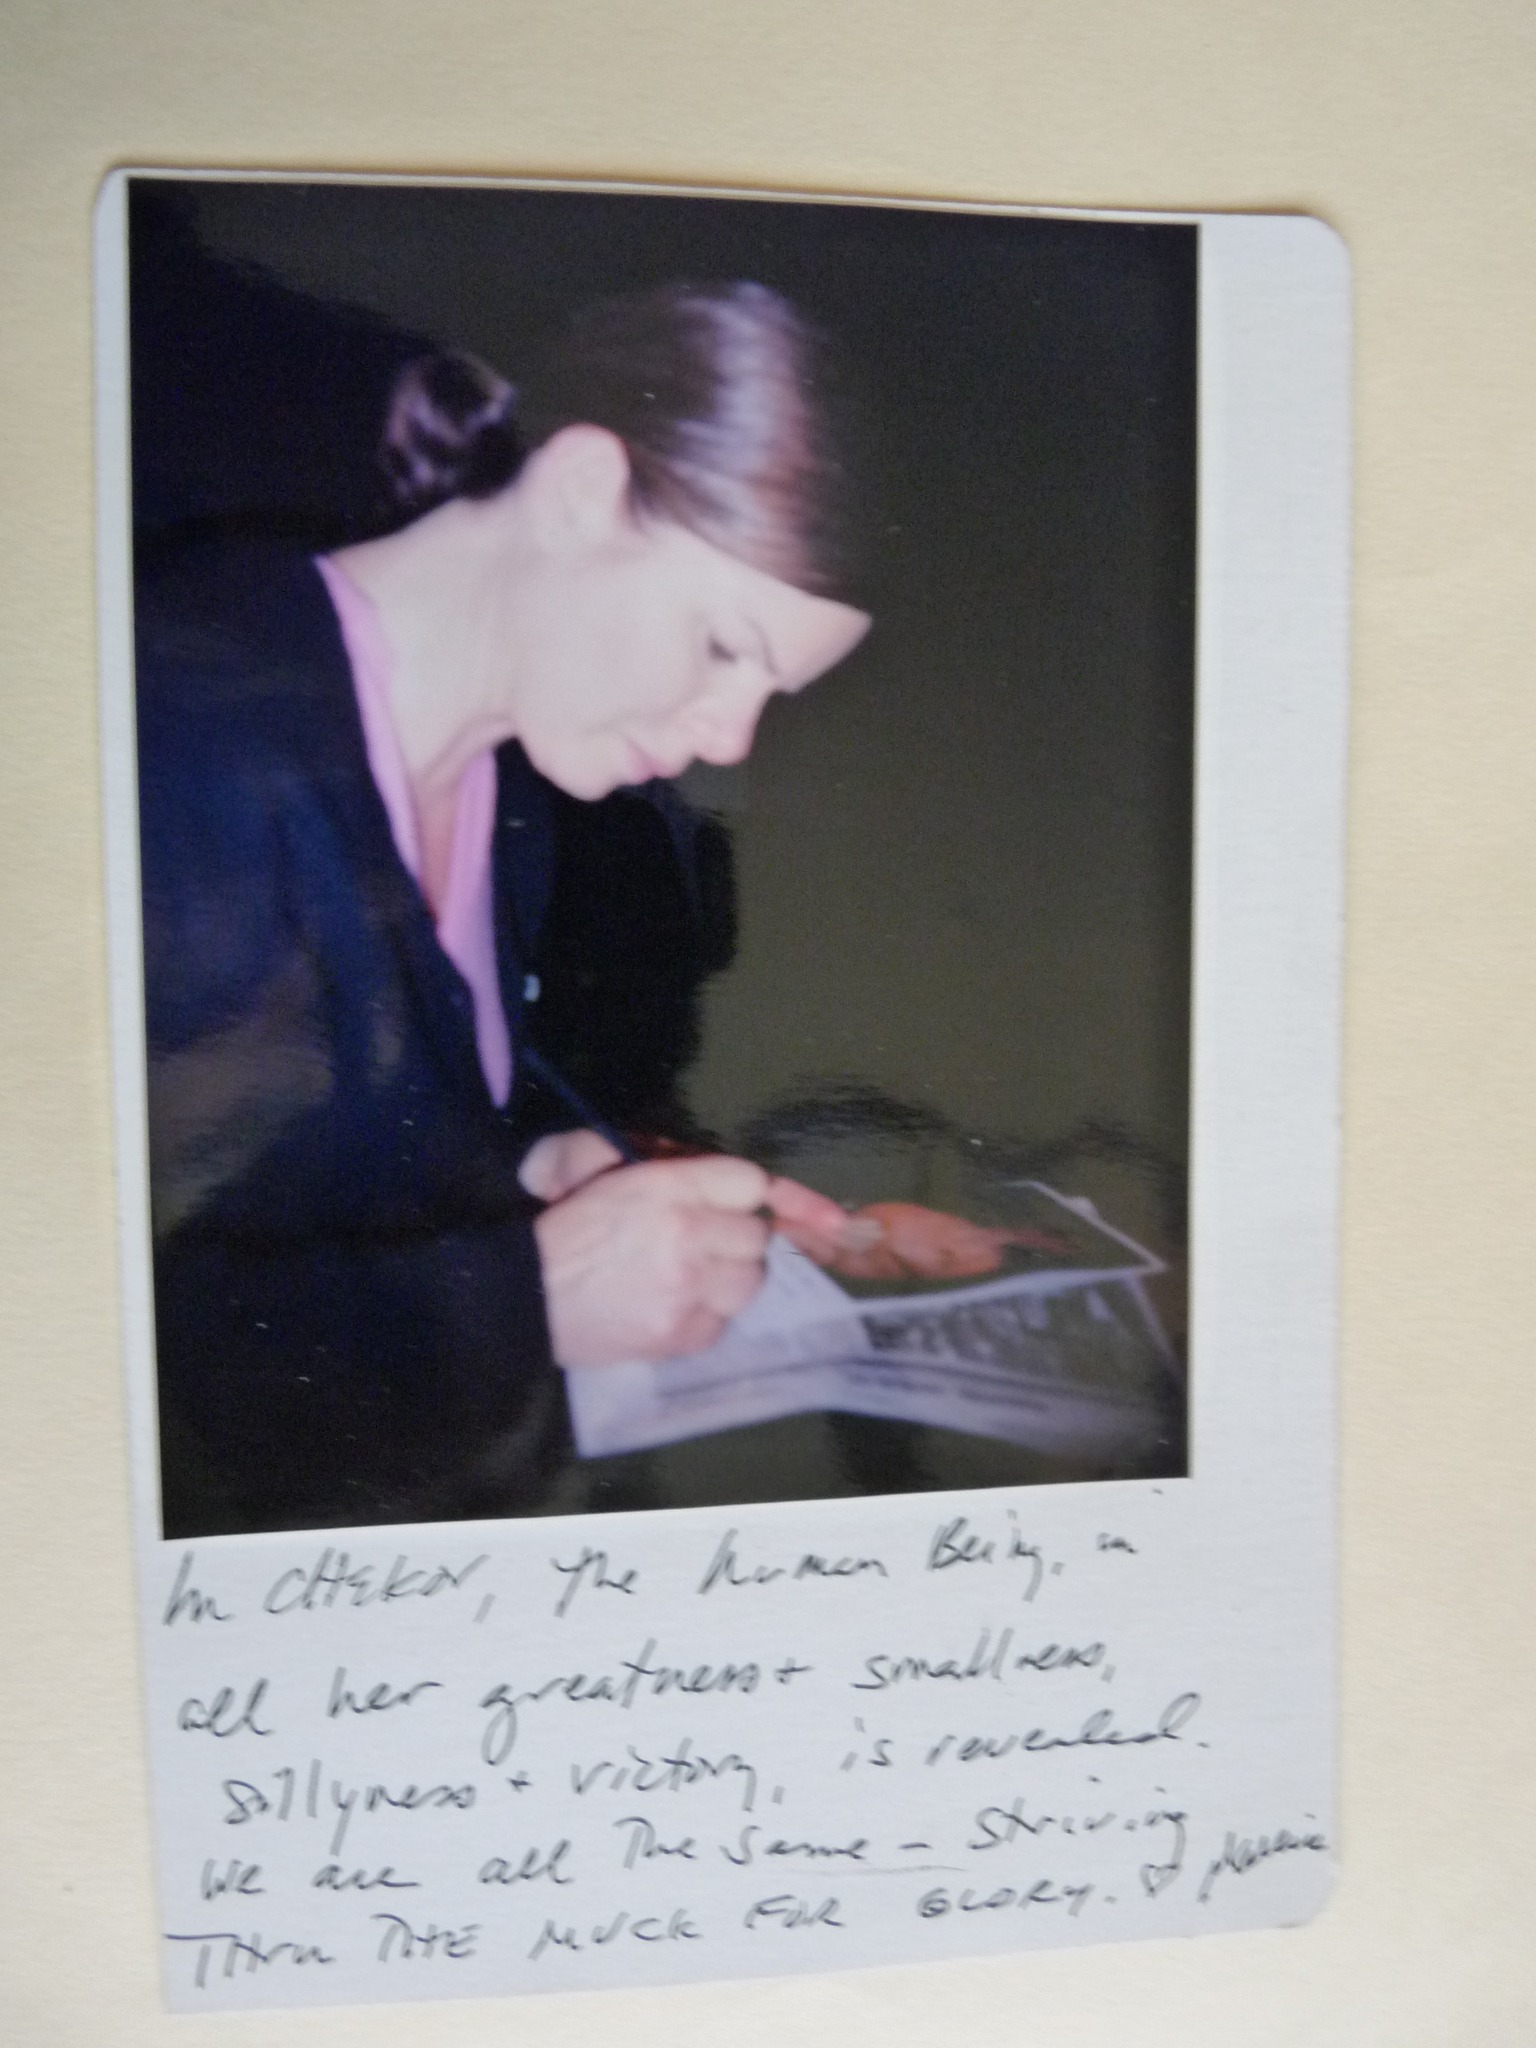 In CHEKOV, The human Being, in
all her greatness + smallness,
sillyness + victory, is revealed.
We are all The same – striving
THru THE MUCK FOR GLORY. ♡